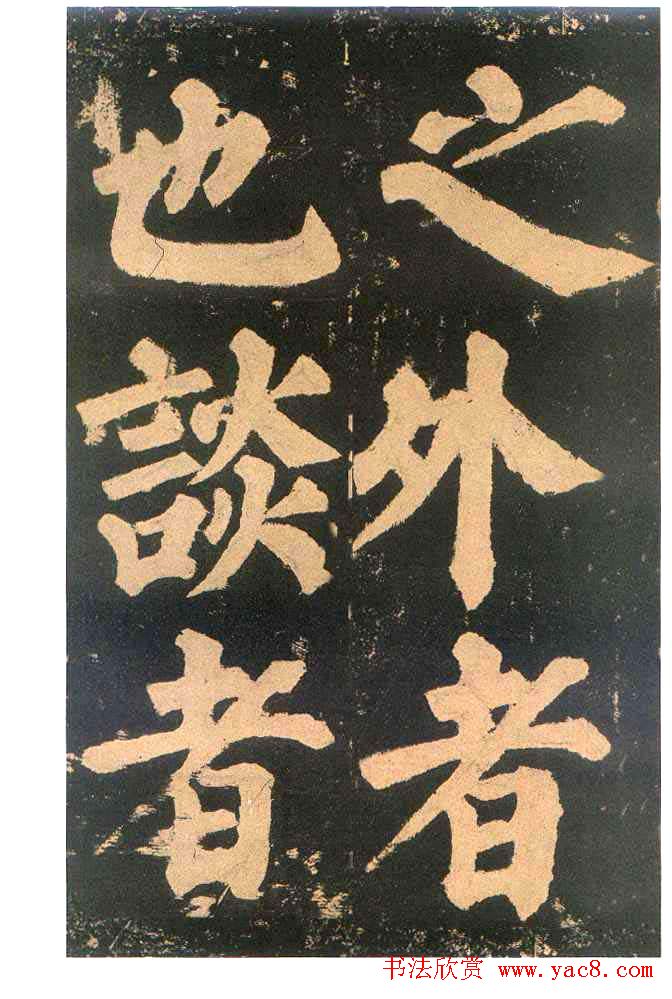 之外者
也談者
书法欣赏 www.yac8.com